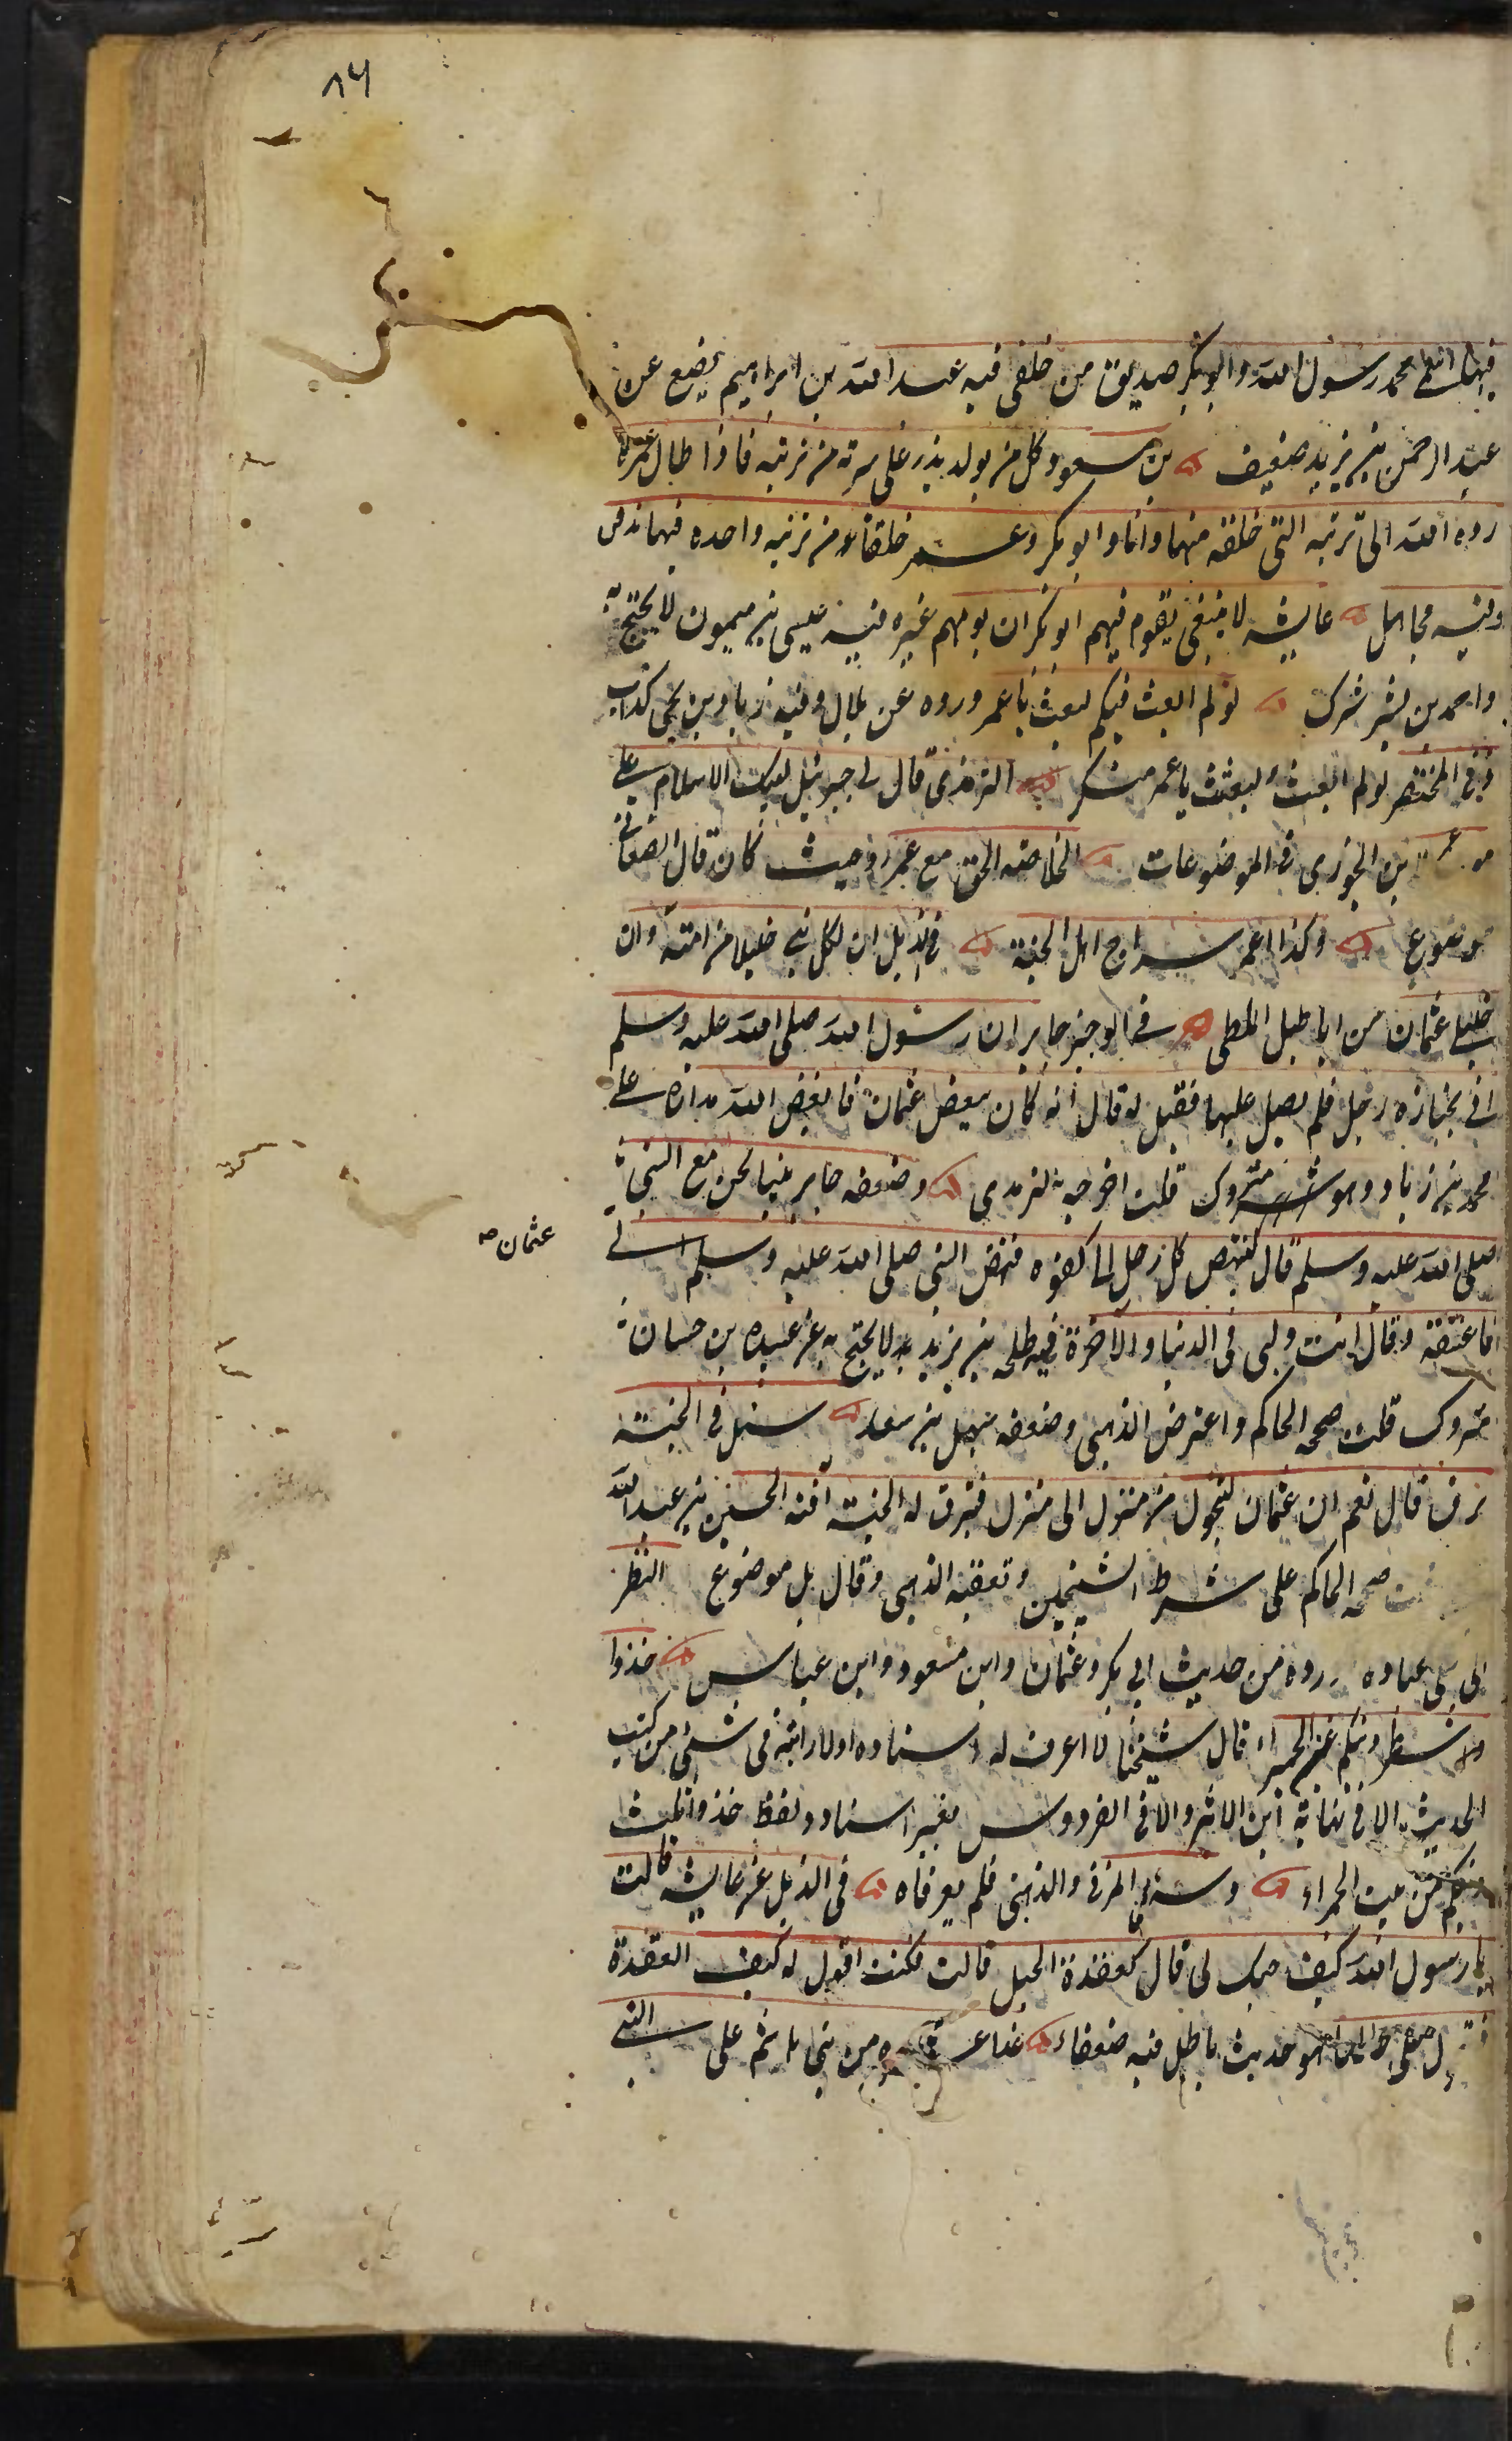 ٨٦
فيها اسمى محمد رسول الله وابوبكر صديق من خلفى فيه عبد الله بن ابراهيم يضع عن
عبد الرحمن بن يزيد ضعيف بن مسعود كل من يولد يذر على سرته من تربته فاذا طال عمره
رده الله الى تربته التى خلقه منها وانا وابو بكر وعمر خلقنا من تربة واحده فيها ندفن
وفيه مجاهل عايشه لا ينبغى بقوم فيهم ابو بكر ان يومهم غيره فيه عيسى بن ميمون لا يحتج به
واحمد بن بشير متروك لو لم ابعث فيكم لبعث فيكم عمر وروه عن بلال وفيه زياد بن يحيى كذاب
وفى المختصر لو لم ابعث لبعثت يا عمر منكر الترمذى قال لى جبرئيل لبيك الاسلام على
موت عمر بن الجوزى فى الموضوعات الخلاصه الحق مع عمر حيث كان قال الصغانى
موضوع وكذا عمر سراج اهل الجنة فى الذيل ان لكل نبى خليلا من امته وان
خليلى عثمان من اباطيل الملطى فى الوجيز جابر ان رسول الله صلى الله عليه وسلم
اتى بجنازه رجل فلم يصل عليها فقيل له قال انه كان يبغض عثمان فابغض الله مداره على
محمد بن زياد وهو متروك قلت اخرجه الترمدى وضعفه جابر بينا نحن مع النبى
صلى الله عليه وسلم قال لينهض كل رجل الى كفوه فنهض النبى صلى الله عليه وسلم الى
عثمان صح
فاعتنقه وقال انت وليى فى الدنيا والآخرة فيه طلحه بن يزيد لا يحتج به عن عبيده بن حسان
متروك قلت صححه الحاكم واعترض الذهبى وضعفه سهل بن سعد سئل فى الجنة
برق قال نعم ان عثمان ليتحول من منزل الى منزل فتبرق له الجنة آفته الحسين بن عبد الله
قلت صححه الحاكم على شرط الشيخين وتعقبه الذهبى وقال بل موضوع النظر
الى على عباده روه من حديث ابى بكر وعثمان وابن مسعود وابن عباس خذوا
شطر دينكم عن الحميراء قال شيخنا لا اعرف له اسنادا ولا رايته فى شئ من كتب
الحديث الا فى نهاية ابن الاثير والا فى الفردوس بغير اسناد ولفظ خذوا ثلث
دينكم من بيت الحمراء وسئل المزى والذهبى فلم يعرفاه فى الذيل عن عايشه قالت
يا رسول الله كيف حبك لى قال كعقدة الحبل قالت فكنت اقول له كيف العقدة
على حالها هو حديث باطل فيه ضعفاء من بنى هاشم على النبى